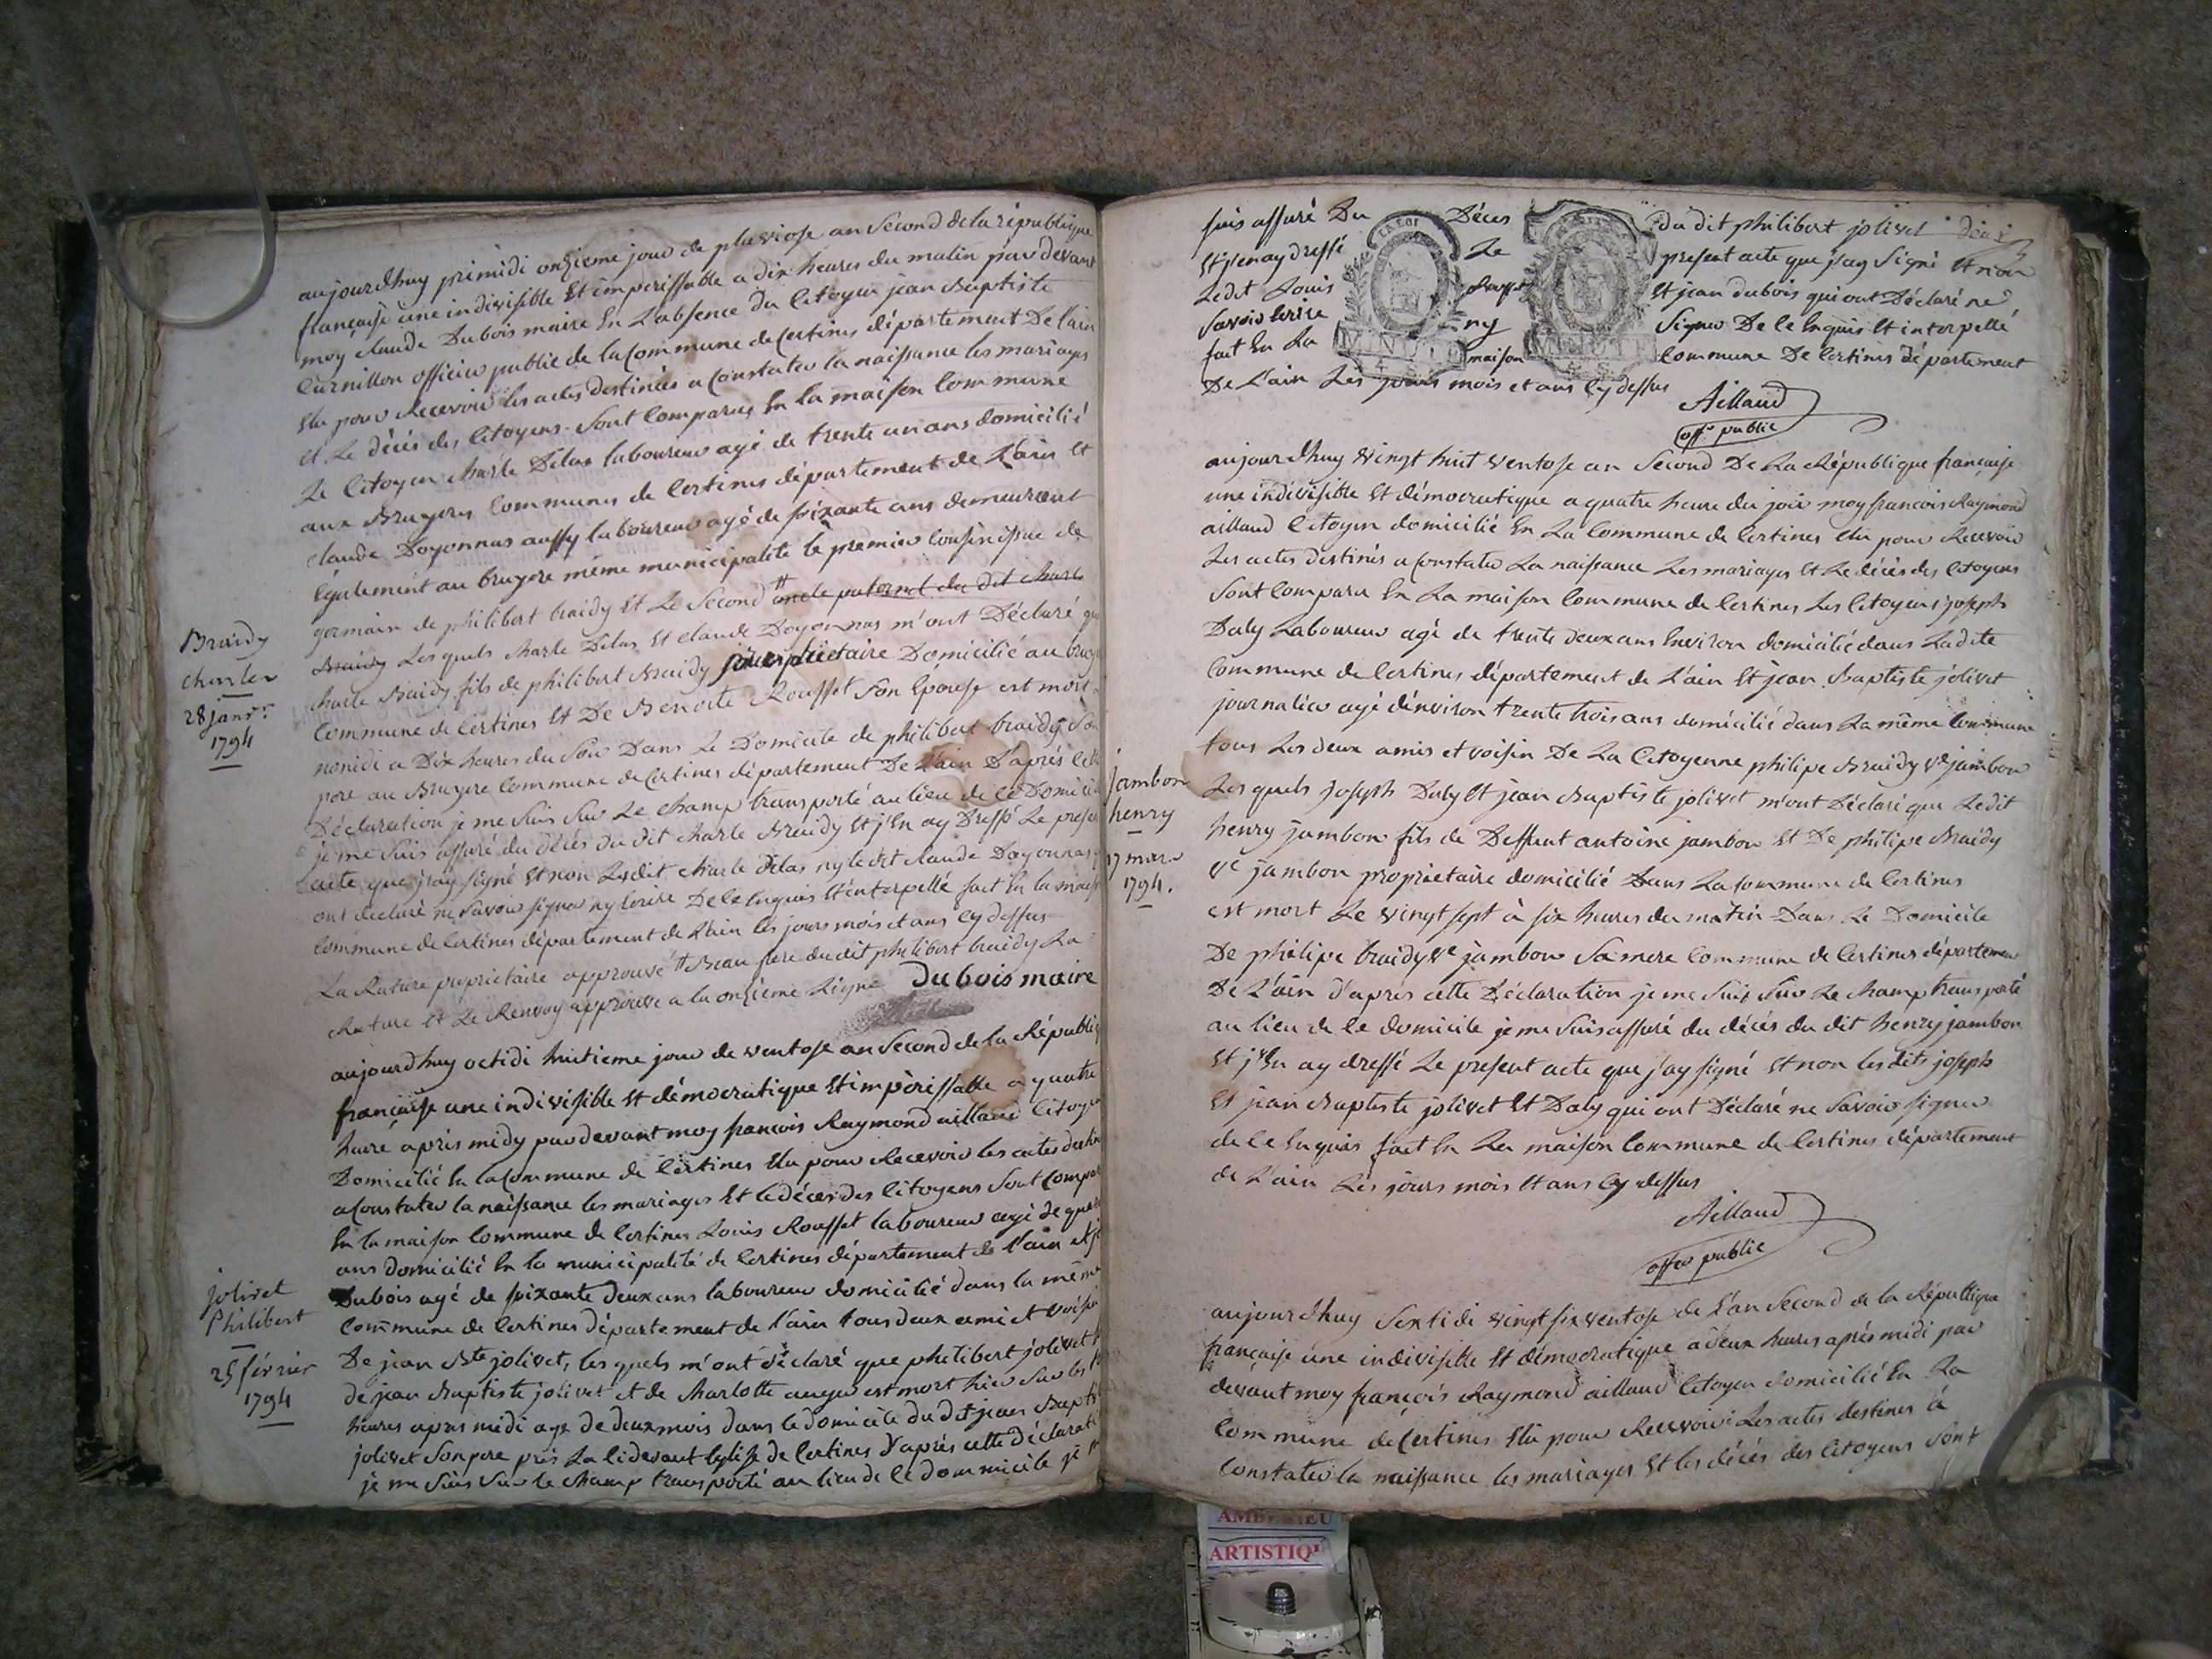 aujourdhuy primidi onzieme jour de pluviose an Second de la république
française une indivisible Et imperissable a dix heures du matin par devant
moy claude Dubois maire En L'absence du Citoyen jean Baptiste
Curnillon officier public de la Commune de Certines département De l'ain
Elu pour Recevoir les actes destinées a Constater la naissance les mariages
et Le décés des Citoyens - Sont Comparus En la maison Commune
Le Citoyen Charle Delas laboureur agé de trente un ans domicilié
aux Bruyeres Communes de Certines département de L'ain Et
claude Doyonnas aussy laboureur agé de soixante ans demeurant
Egalement au bruyere même municipalité le premier Cousin issue de
germain de philibert braidy Et Le Second # oncle paternel du dit charle
Braidy Les quels charle Delas Et claude Doyonnas m'ont Déclaré que
charle Braidy fils de philibert Braidy propriétaire Domicilié au bruye
Commune de Certines Et De Benoite Rousset Son Epouse est mort
nonidi a Dix heures du Soir Dans Le Domicile de philibert braidy Son
pere au Bruyere Commune de Certines département De L'ain D'aprés Cette
Déclaration je me Suis Sur Le champ transporté au lieu de ce Domicile
je me suis assuré du décés du dit charle Braidy Et j'En ay Dressé Le present
acte que j'ay signé Et non Ledit charle Delas ny ledit claude Doyonnas
ont declaré ne Savoir signer ny Ecrire De ce Enquis Et interpellé fait En la mais
Commune de Certines département de L'ain les jours mois et ans Cy dessus
La Rature propriétaire approuvé # Beau frere du dit philibert braidy La
Rature Et Le Renvoy approuvé a la onzieme Ligne Dubois maire
Braidy
charles
28 janvr.
1794
aujourdhuy octidi huitieme jour de ventose an Second de la Républiq
française une indivisible Et démocratique Et impérissable a quatre
heure aprés midy par devant moy françois Raymond aillaud Citoyen
Domicilié En la Commune de Certines Elu pour Recevoir les actes destin
a Constater la naissance les mariages Et le décés des Citoyens Sont Compar
En la maison Commune de Certines Louis Rousset laboureur agé de quar
ans domicilié En la municipalité de Certines département de L'ain et j
Dubois agé de soixante deux ans laboureur domicilié dans la même
Commune de Certines Département de l'ain tous deux ami et voisin
De jean Bte jolivet, les quels m'ont déclaré que philibert jolivet
de jean Baptiste jolivet et de Charlotte auger est mort hier Sur les
heures apres midi age de deux mois dans le domicile du dit jean Bapti
jolivet Son pere prés La Cidevant Eglise de Certines D'aprés cette déclarati
je me Suis Sur le champ transporté au lieu de ce dommicile je m
jolivet
Philibert
25 février
1794
suis assuré Du Déces du dit philibert jolivet
Et j'en ay dressé Le present acte que j'ay Signé Et non
Ledit Louis Rousset Et jean dubois qui ont Déclaré ne
Savoir Ecrire ny Signer De ce Enquis Et interpellé
fait En La maison Commune De Certines département
De L'ain Les jours mois et ans Cy dessus
LA LOI
MINUTE
MINUTE
Aillaud
offr. public
aujourdhuy vingt huit ventose an Second De La République française
une indivisible Et démocratique a quatre heure du soir moy francois Raymond
aillaud Citoyen domicilié En La Commune de Certines Elu pour Recevoir
Les actes destinés a Constater La naissance Les mariages Et Le décés des Citoyens
Sont Comparu En La maison Commune de Certines Les Citoyens joseph
Daly Laboureur agé de trente deux ans Environ domicilié dans Ladite
Commune de Certines département de L'ain Et jean Baptiste jolivet
journalier agé d'environ trente trois ans domicilié dans La même Commune
tous Les deux amis et voisin De La Citoyenne philipe Braidy ve jambon
Les quels joseph Daly Et jean Baptiste jolivet m'ont Déclaré que Ledit
henry jambon fils de Deffunt antoine jambon Et De philipe Braidy
ve jambon propriétaire domicilié Dans La Commune de Certines
est mort Le vingt sept à six heures du matin Dans Le Domicile
De philipe braidy ve jambon Sa mere Commune de Certines département
De L'ain d'aprés cette Déclaration je me Suis Sur Le champ transporté
au lieu de ce domicile je me Suis assuré du décés du dit henry jambon
Et j'En ay dressé Le present acte que j'ay signé Et non les dits joseph
Et jean Baptiste jolivet Et Daly qui ont Déclaré ne Savoir signer
de ce Enquis fait En La maison Commune de Certines département
de L'ain Les jours mois Et ans Cy dessus
jambon
henry
17 mars
1794.
Aillaud
offer public
aujourdhuy Sextidi vingt six ventose de L'an Second de la République
française une indivisible Et démocratique a deux heures aprés midi par
devant moy françois Raymond aillaud Citoyen domicilié En La
Commune de Certines Elu pour Recevoir Les actes destines à
Constater la naissance les mariages Et les décés des Citoyens Sont
AMBERIEU
ARTISTIQU